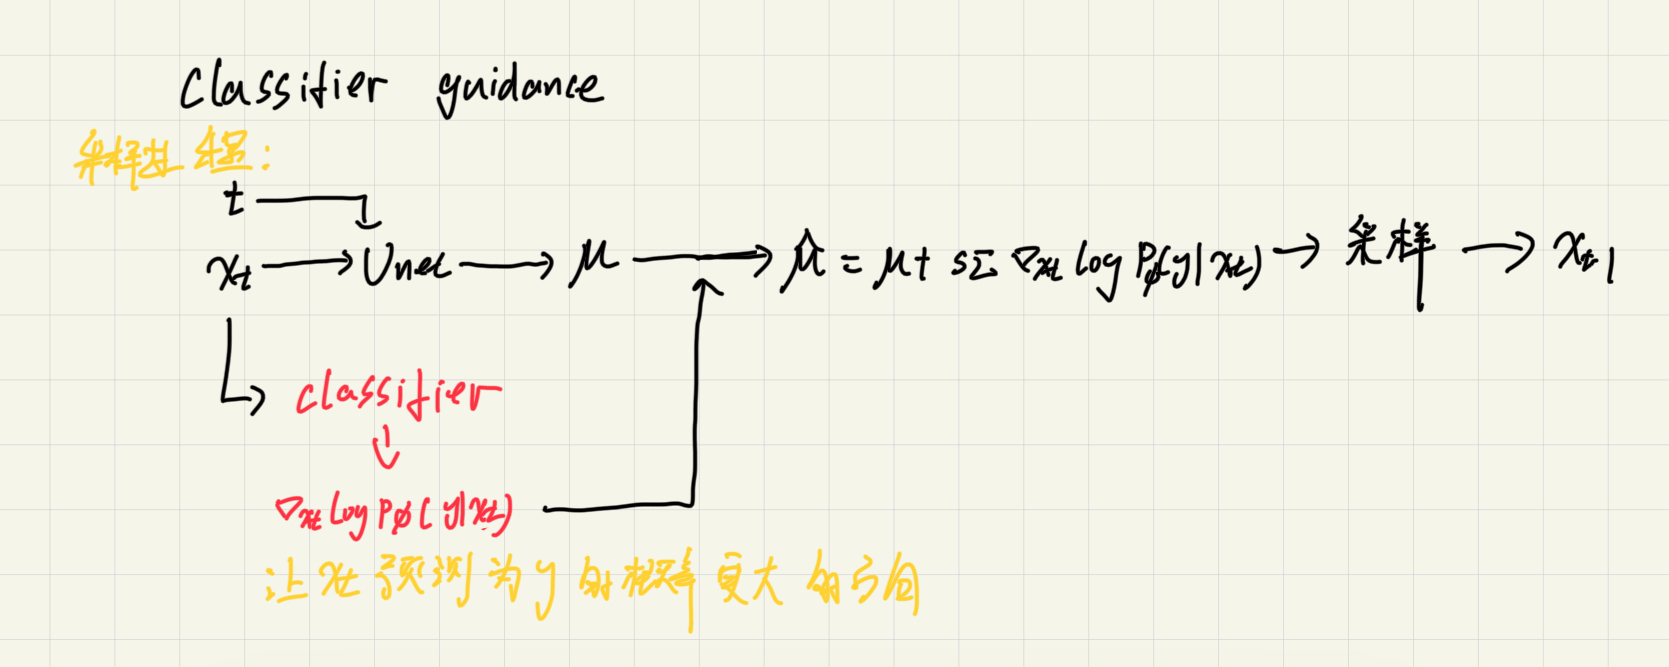 Classifier guidance
采样过程:
t
xₜ → Unet → μ → μ̂ = μ + sΣ ∇xₜ log Pϕ(y|xₜ) → 采样 → xₜ₋₁
classifier
↓
∇xₜ log Pϕ(y|xₜ)
让 xₜ 预测为 y 的概率更大的方向